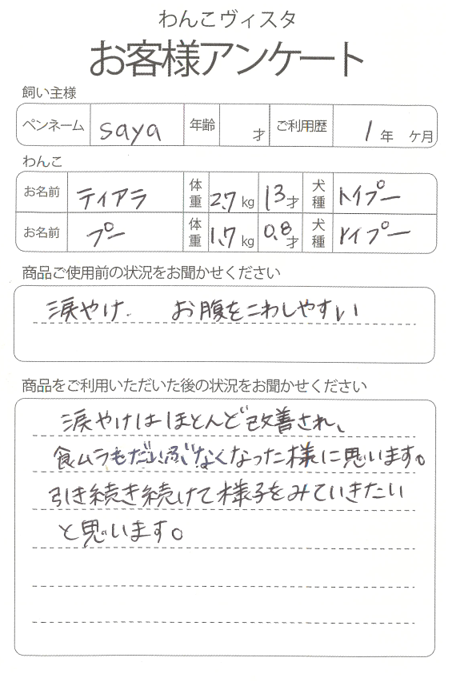 わんこヴィスタ
お客様アンケート
飼い主様
ペンネーム saya 年齢 才 ご利用歴 1年 ケ月
わんこ
お名前 ティアラ 体重 2.7kg 13才 犬種 トイプー
お名前 プー 体重 1.7kg 0.8才 犬種 トイプー
商品ご使用前の状況をお聞かせください
涙やけ. お腹をこわしやすい
商品をご利用いただいた後の状況をお聞かせください
涙やけはほとんど改善され、
食ムラもだいぶなくなった様に思います。
引き続き続けて様子をみていきたい
と思います。